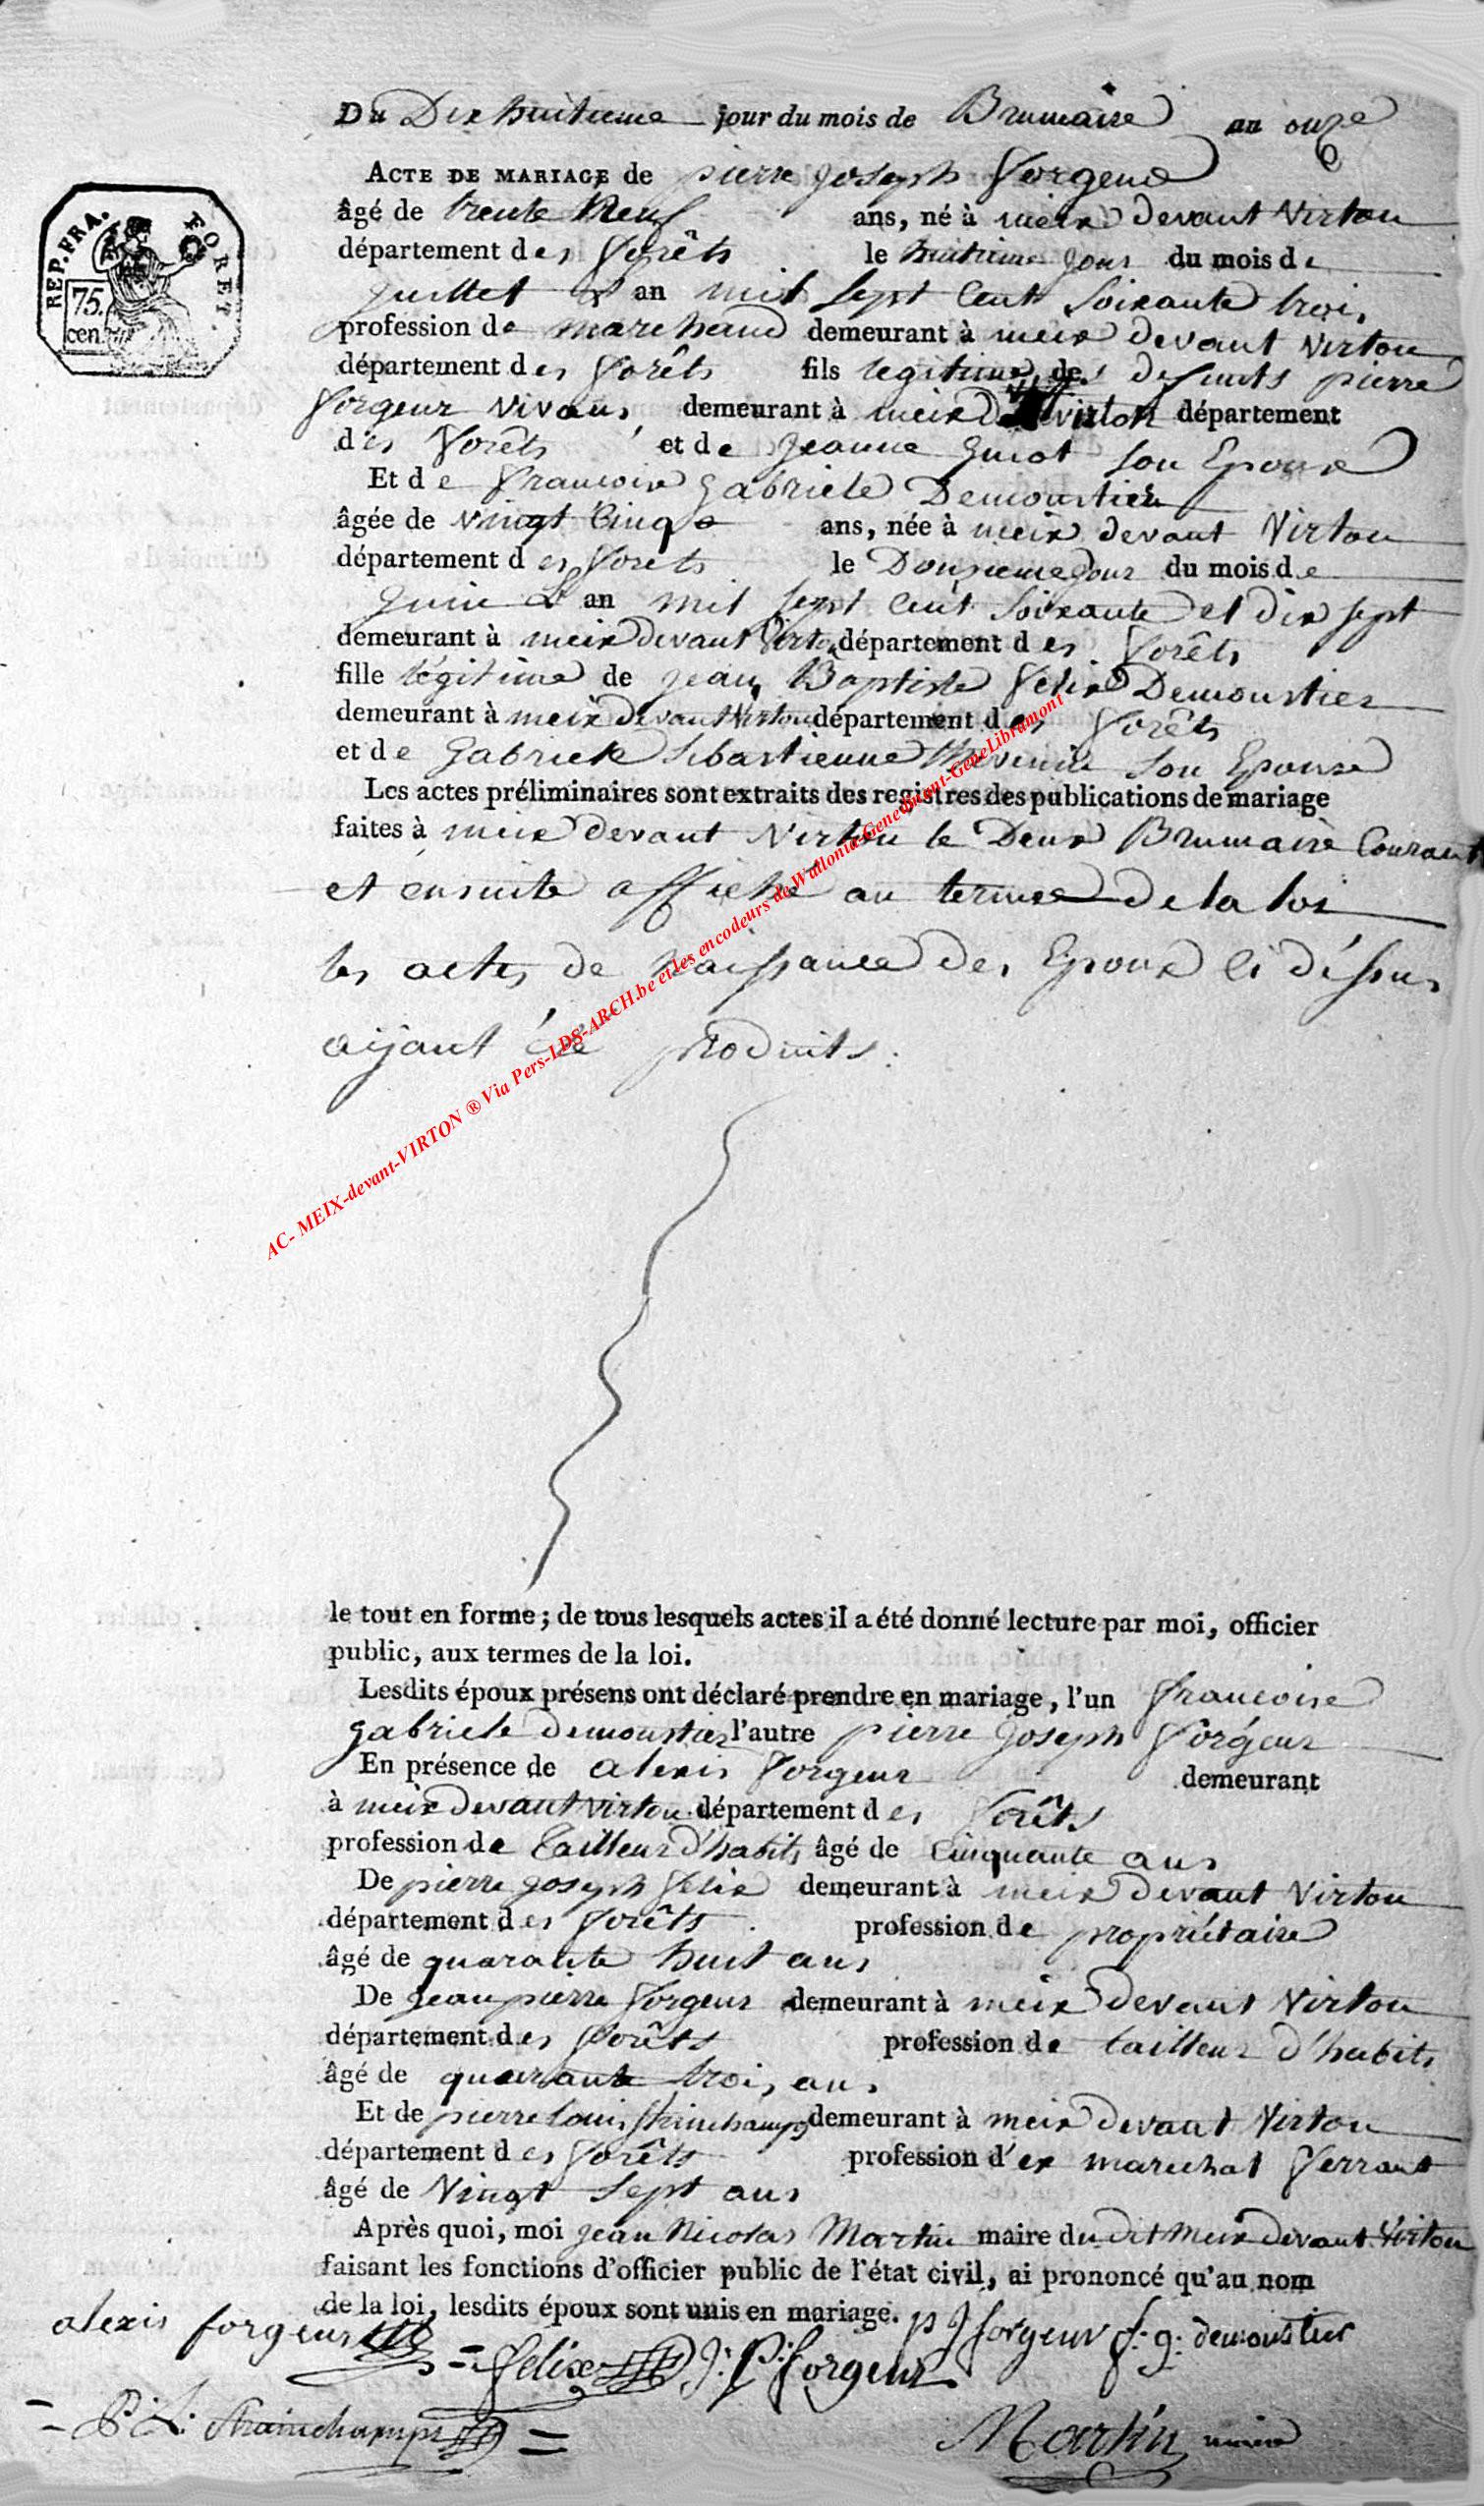 Du Dix huitieme jour du mois de Brumaire an onze
ACTE DE MARIAGE de pierre joseph forgeur
âgé de trente Neuf ans, né à meix devant Virton
département des forêts le huitieme jour du mois de
juillet L'an mil sept Cent Soixante trois
profession de marchand demeurant à meix devant Virton
département des forêts fils legitime des defunts pierre
forgeur vivans demeurant à meix virton département
des forêts et de jeanne guiot son Epouse
Et de francoise gabriele Demoustier
âgée de vingt Cinq ans, née à meix devant Virton
département des forets le Douzieme jour du mois de
juin L'an mil sept Cent Soixante et dix sept
demeurant à meix devant Virton département des forêts
fille légitime de jean Baptiste felix Demoustier
demeurant à meix devant Virton département des forêts
et de gabriele sebastienne thevenin son Epouse
Les actes préliminaires sont extraits des registres des publications de mariage
faites à meix devant Virton le Deux Brumaire Courant
et ensuite affiché au termes de la loi
les actes de Naissance des Epoux ci déssus
aÿant été produits.
le tout en forme; de tous lesquels actes il a été donné lecture par moi, officier
public, aux termes de la loi.
Lesdits époux présens ont déclaré prendre en mariage, l'un francoise
gabriele demoustier l'autre pierre joseph forgeur
En présence de alexis forgeur demeurant
à meix devant virton département des forêts
profession de tailleur d'habits âgé de Cinquante ans
De pierre joseph felix demeurant à meix devant Virton
département des forêts profession de propriétaire
âgé de quarante huit ans
De jean pierre forgeur demeurant à meix devant Virton
département des forêts profession de tailleur d'habits
âgé de quarante trois ans
Et de pierre louis strainchamps demeurant à meix devant Virton
département des forêts profession d'ex marechal ferrant
âgé de Vingt sept ans
Après quoi, moi jean Nicolas Martin maire du dit Meix devant Virton
faisant les fonctions d'officier public de l'état civil, ai prononcé qu'au nom
de la loi, lesdits époux sont unis en mariage. p J forgeur f. g. demoustier
alexis forgeur felix J. P. forgeur
P. L. Strainchamps Martin maire
REP. FRA. FORET.
75. cen.
AC- MEIX-devant-VIRTON ® Via Pers-LDS-ARCH.be et Les encodeurs de Wallonia-Genedinant-GeneLibramont